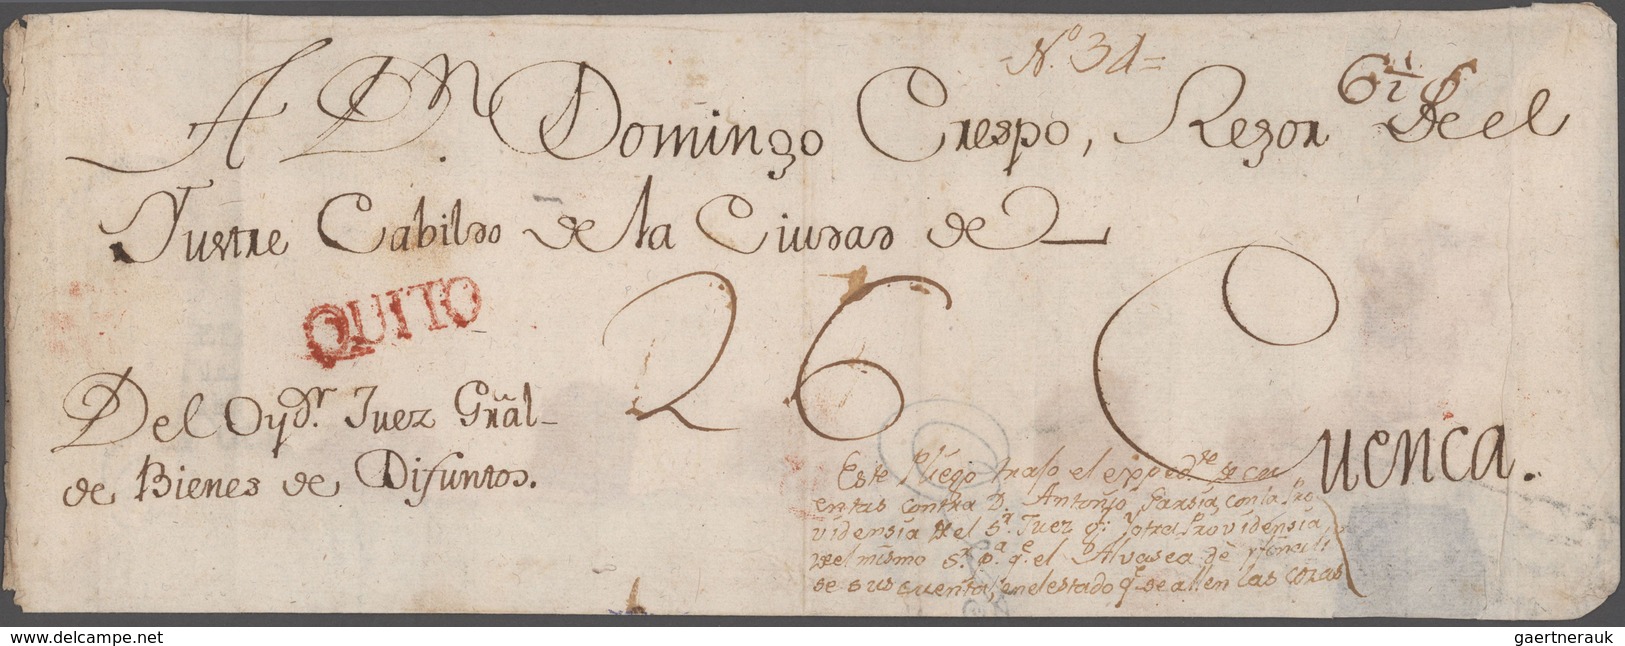 -N.º 3d=
6"7
A D.n Domingo Crespo, Rexor de el
Yustre Cabildo de la Ciudad de
QUITO
26
Cuenca.
Del Oyd.r Juez Gñal-
de Bienes de Difuntos.
Este Pliego traſo el exped.te de cu
entas contra D. Antonio Garsia, con la Pro
videnſia del S.r Juez g.l Yotra Providensia,
del mismo S.r p.a q.e el Alvasea de
de sus cuenta, en el estado q.e se allen las cozas
delcampe.net
gaertnerauk